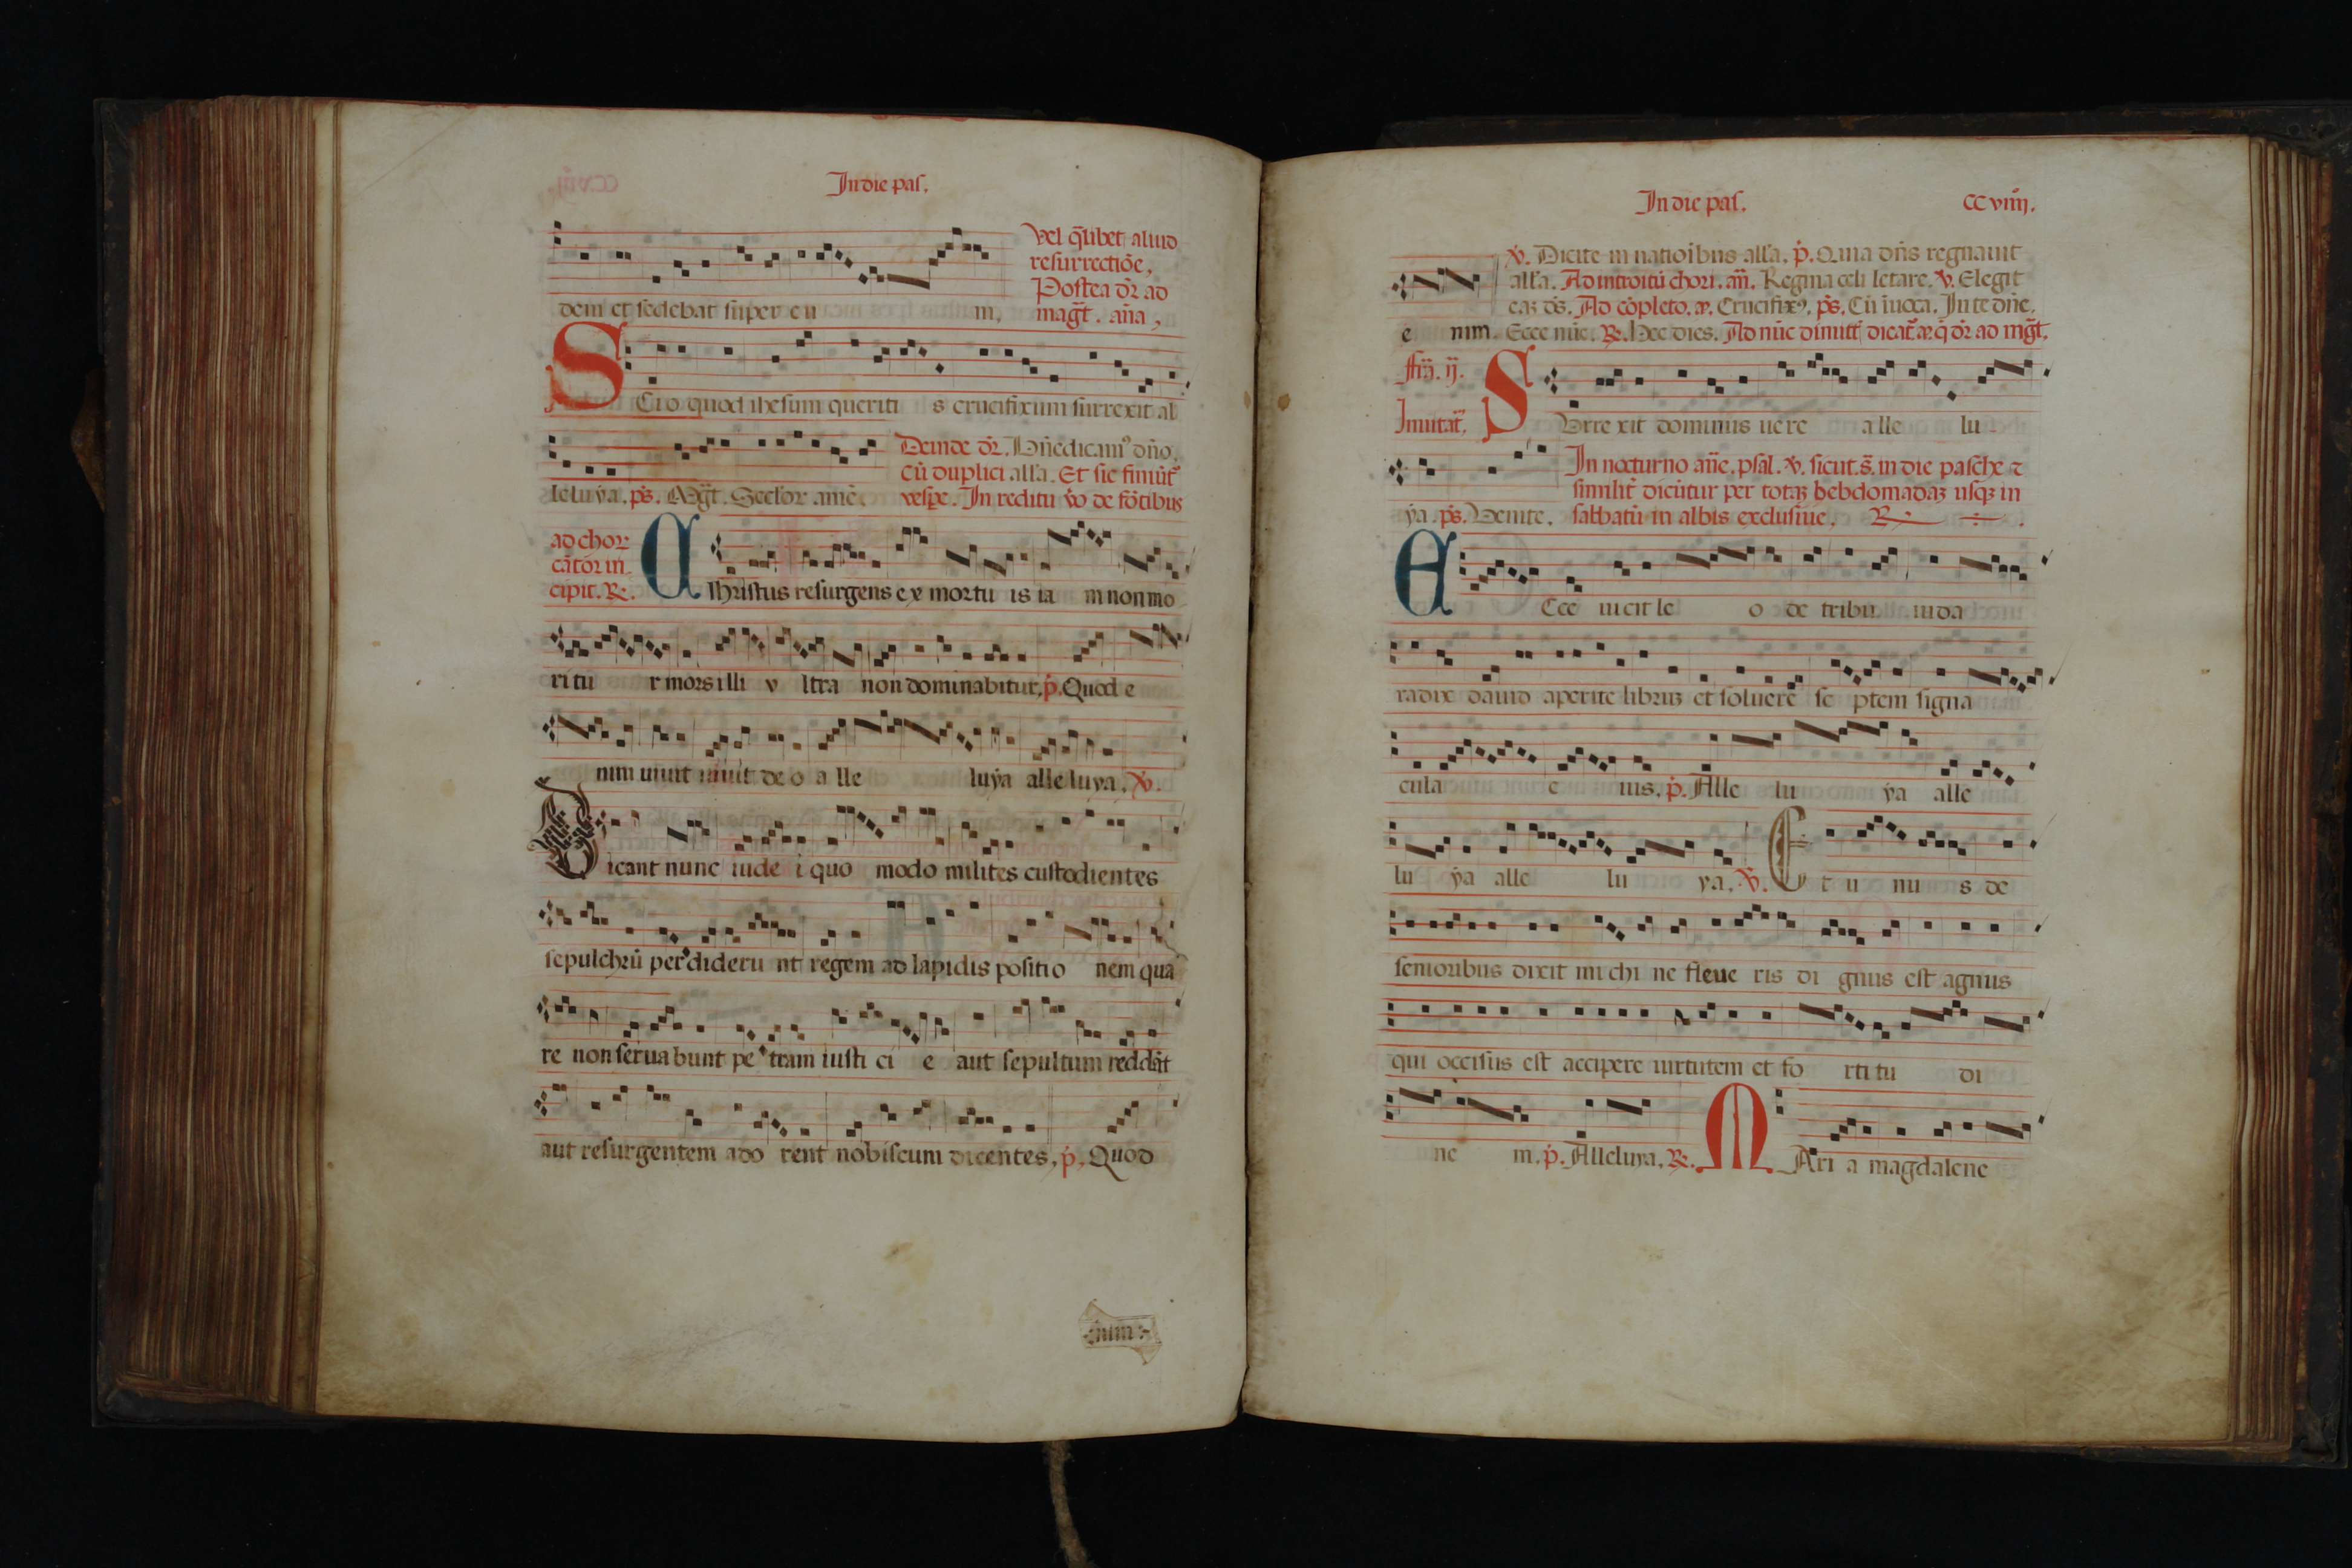 In die pas.
Vel q̄libet aliud
resurrectiōe,
Postea dr̄ ad
dem et sedebat super eu m, magt̄. an̄a,
SCio quod ihesum queriti s crucifixum surrexit al
Deinde dr̄. Bn̄edicam⁹ dn̄o.
Cū duplici all'a. Et sic finiūt᷑
leluya. ps̄. Mgt̄. Seclor amē. vesꝑe. In reditu v̇o de fōtibus
ad chor
cātor in
cipit. ℟. Christus resurgens ex mortu is ia m non mo
ritu r mors illi v ltra non dominabitur, p̄. Quod e
nim uiuit uiuit de o a lle luẏa alle luya. ℣.
Dicant nunc iude i quo modo milites custodientes
sepulchrū perdideru nt regem ad lapidis positio nem qua
re non serua bunt pe tram iusti ci e aut sepultum reddāt
aut resurgentem ado rent nobiscum dicentes, p̄, Quod
nim
In die pas.
CC viiij.
℣. Dicite in natioībus all'a. p̄. Quia dn̄s regnauit
all'a. Ad introitū chori. an̄. Regina celi letare. ℣. Elegit
eaꝫ ds̄. Ad cōpleto. a᷑. Crucifix⁹, ps̄. Cū īuoca. In te dn̄e.
e nim. Ecce nūc. ℟. Hec dies. Ad nūc dimitt̄ dicat᷑ a᷑. q̄ dr̄ ad mgt̄.
fr̄ia. ij.
Inuitat̄. SVrre xit dominus uere alle lu
In nocturno an̄e. psal. ℣. sicut. s̄. in die pasche ⁊
similit̄ dicūtur per totaꝫ hebdomadaꝫ usqꝫ in
ẏa. ps̄. Venite. sabbatū in albis exclusiue. ℟
ECce uicit le o de tribu iuda
radix dauid aperire librum et soluere se ptem signa
cula e ius. p̄. Alle lu ẏa alle
lu ẏa alle lu ya, ℣. Et u nu s de
senioribus dixit michi ne fleue ris di gnus est agnus
qui occisus est accipere uirtutem et fo rti tu di
ne m. p̄. Alleluya. ℟. MAri a magdalene